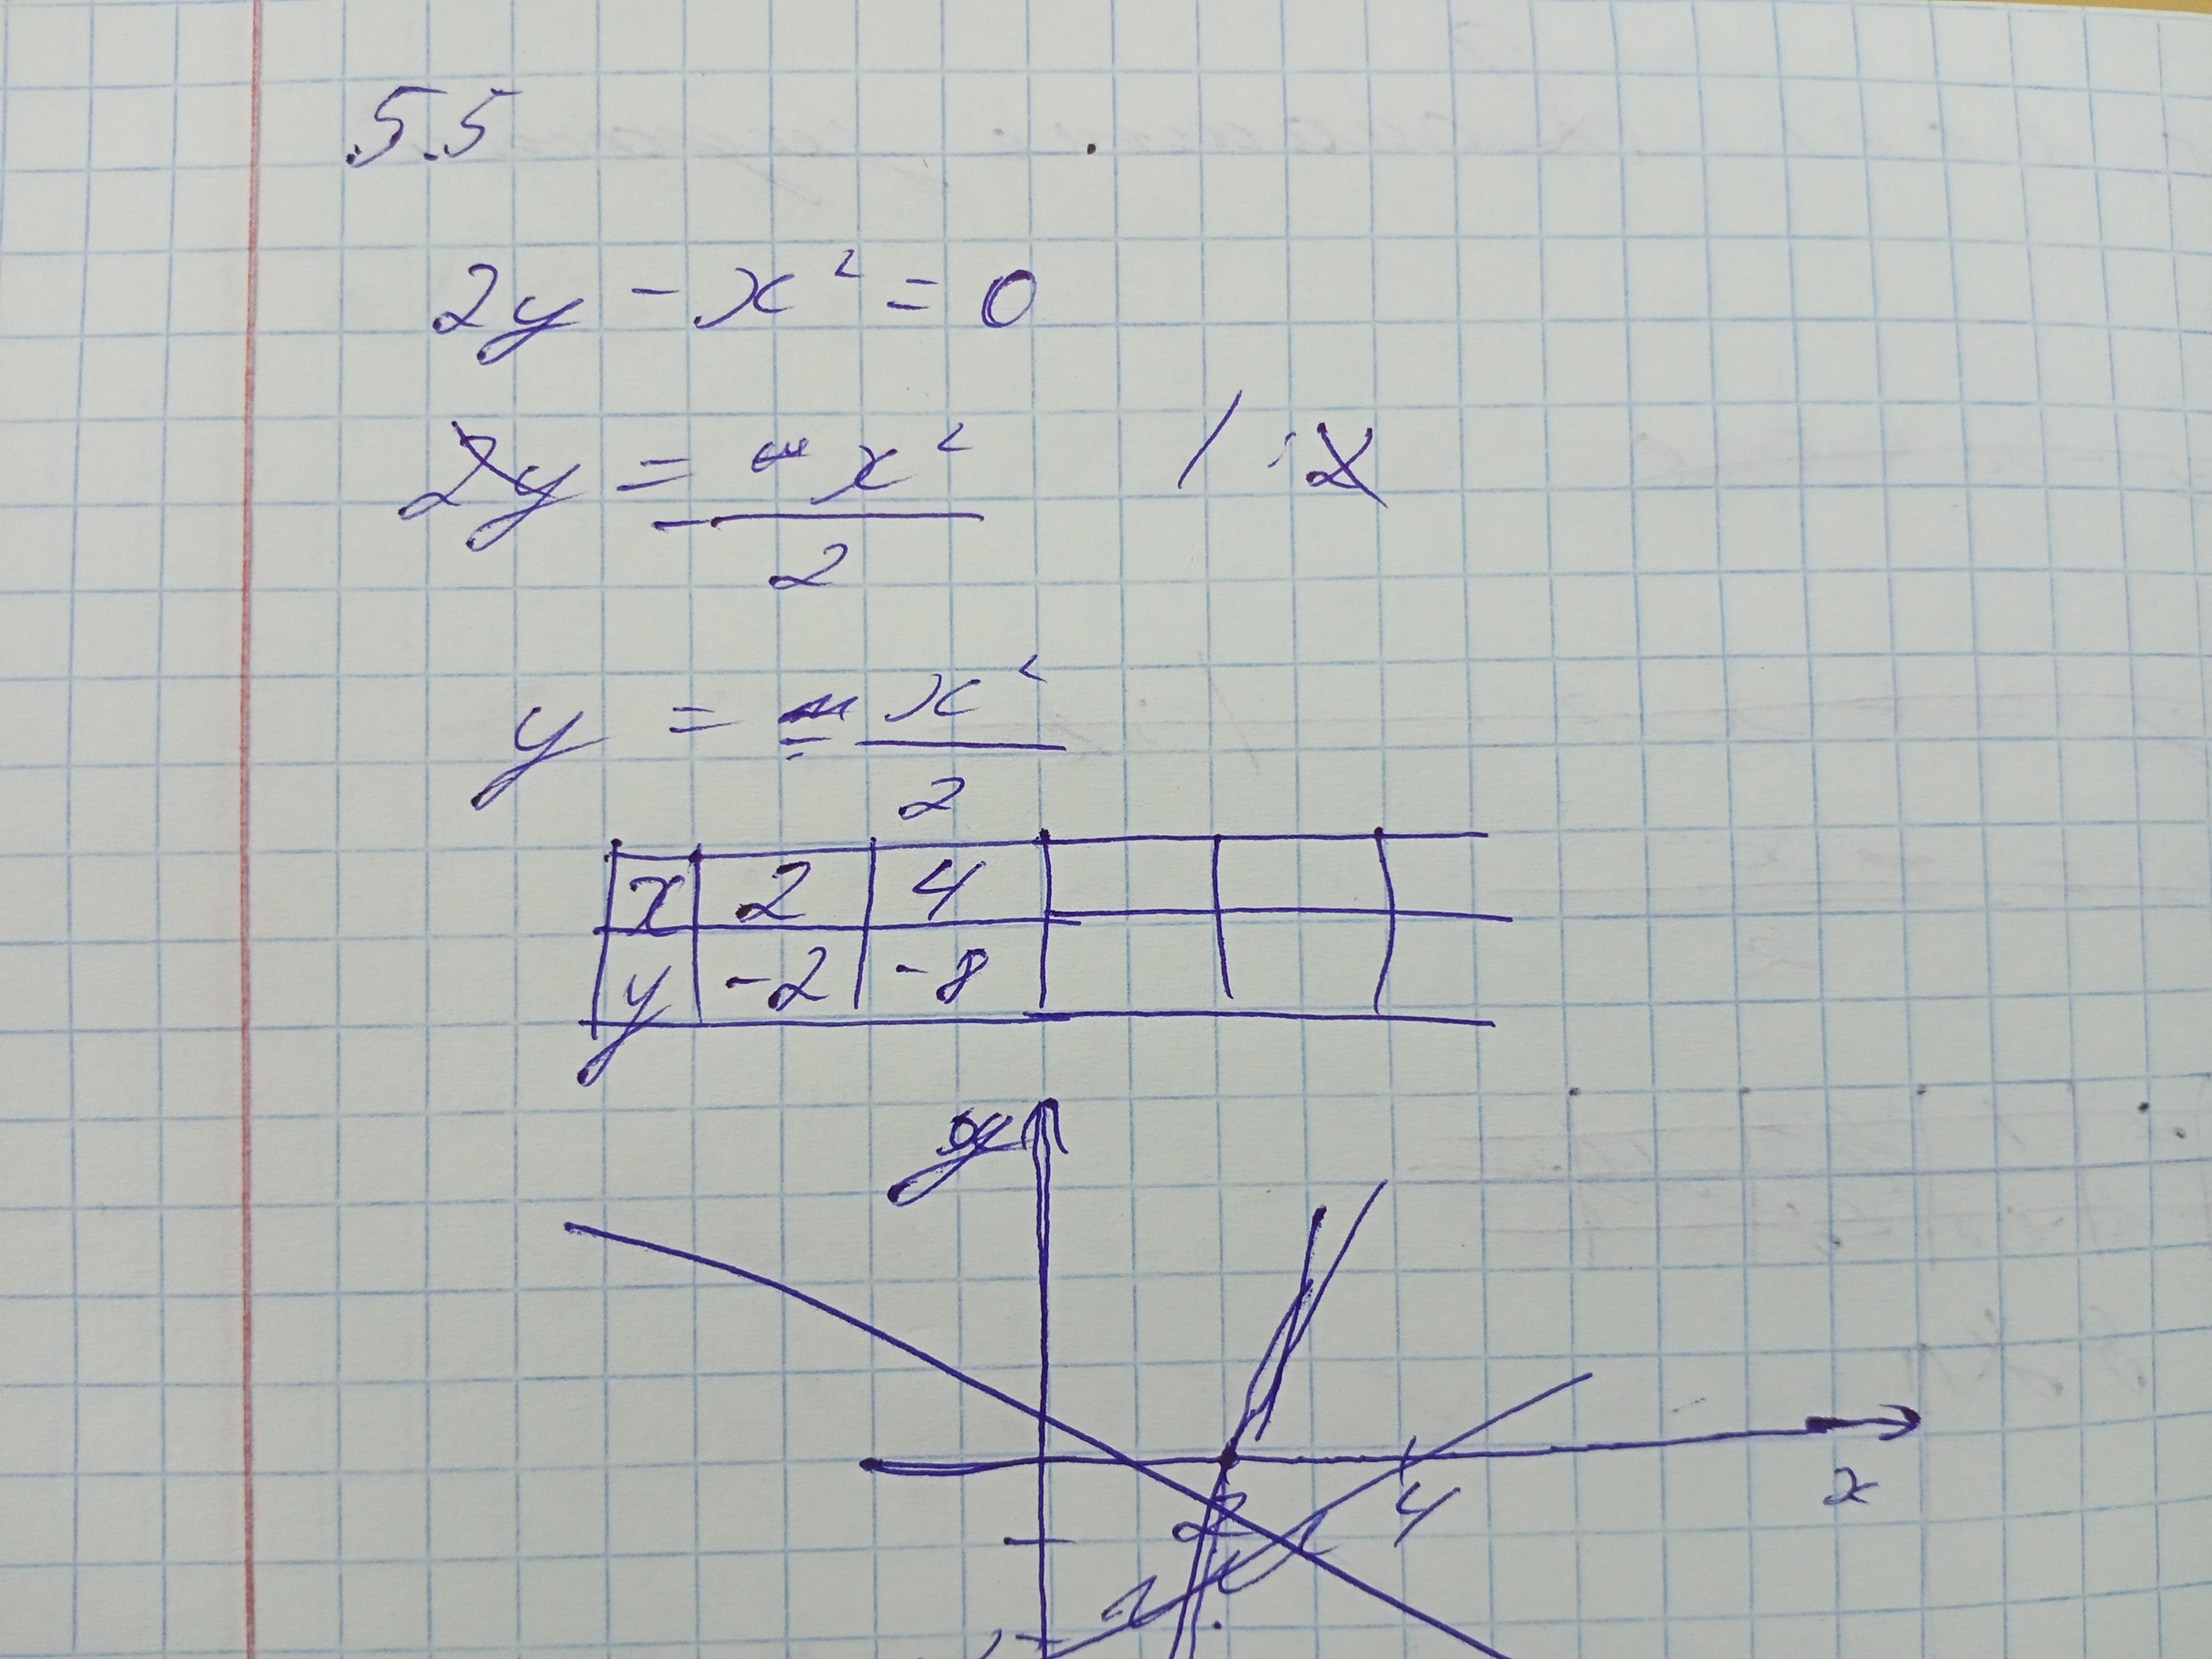 5.5
2y - x² = 0
2y = x² / 2 / : 2
y = x² / 2
x 2 4
y -2 -8
y
2 4 x